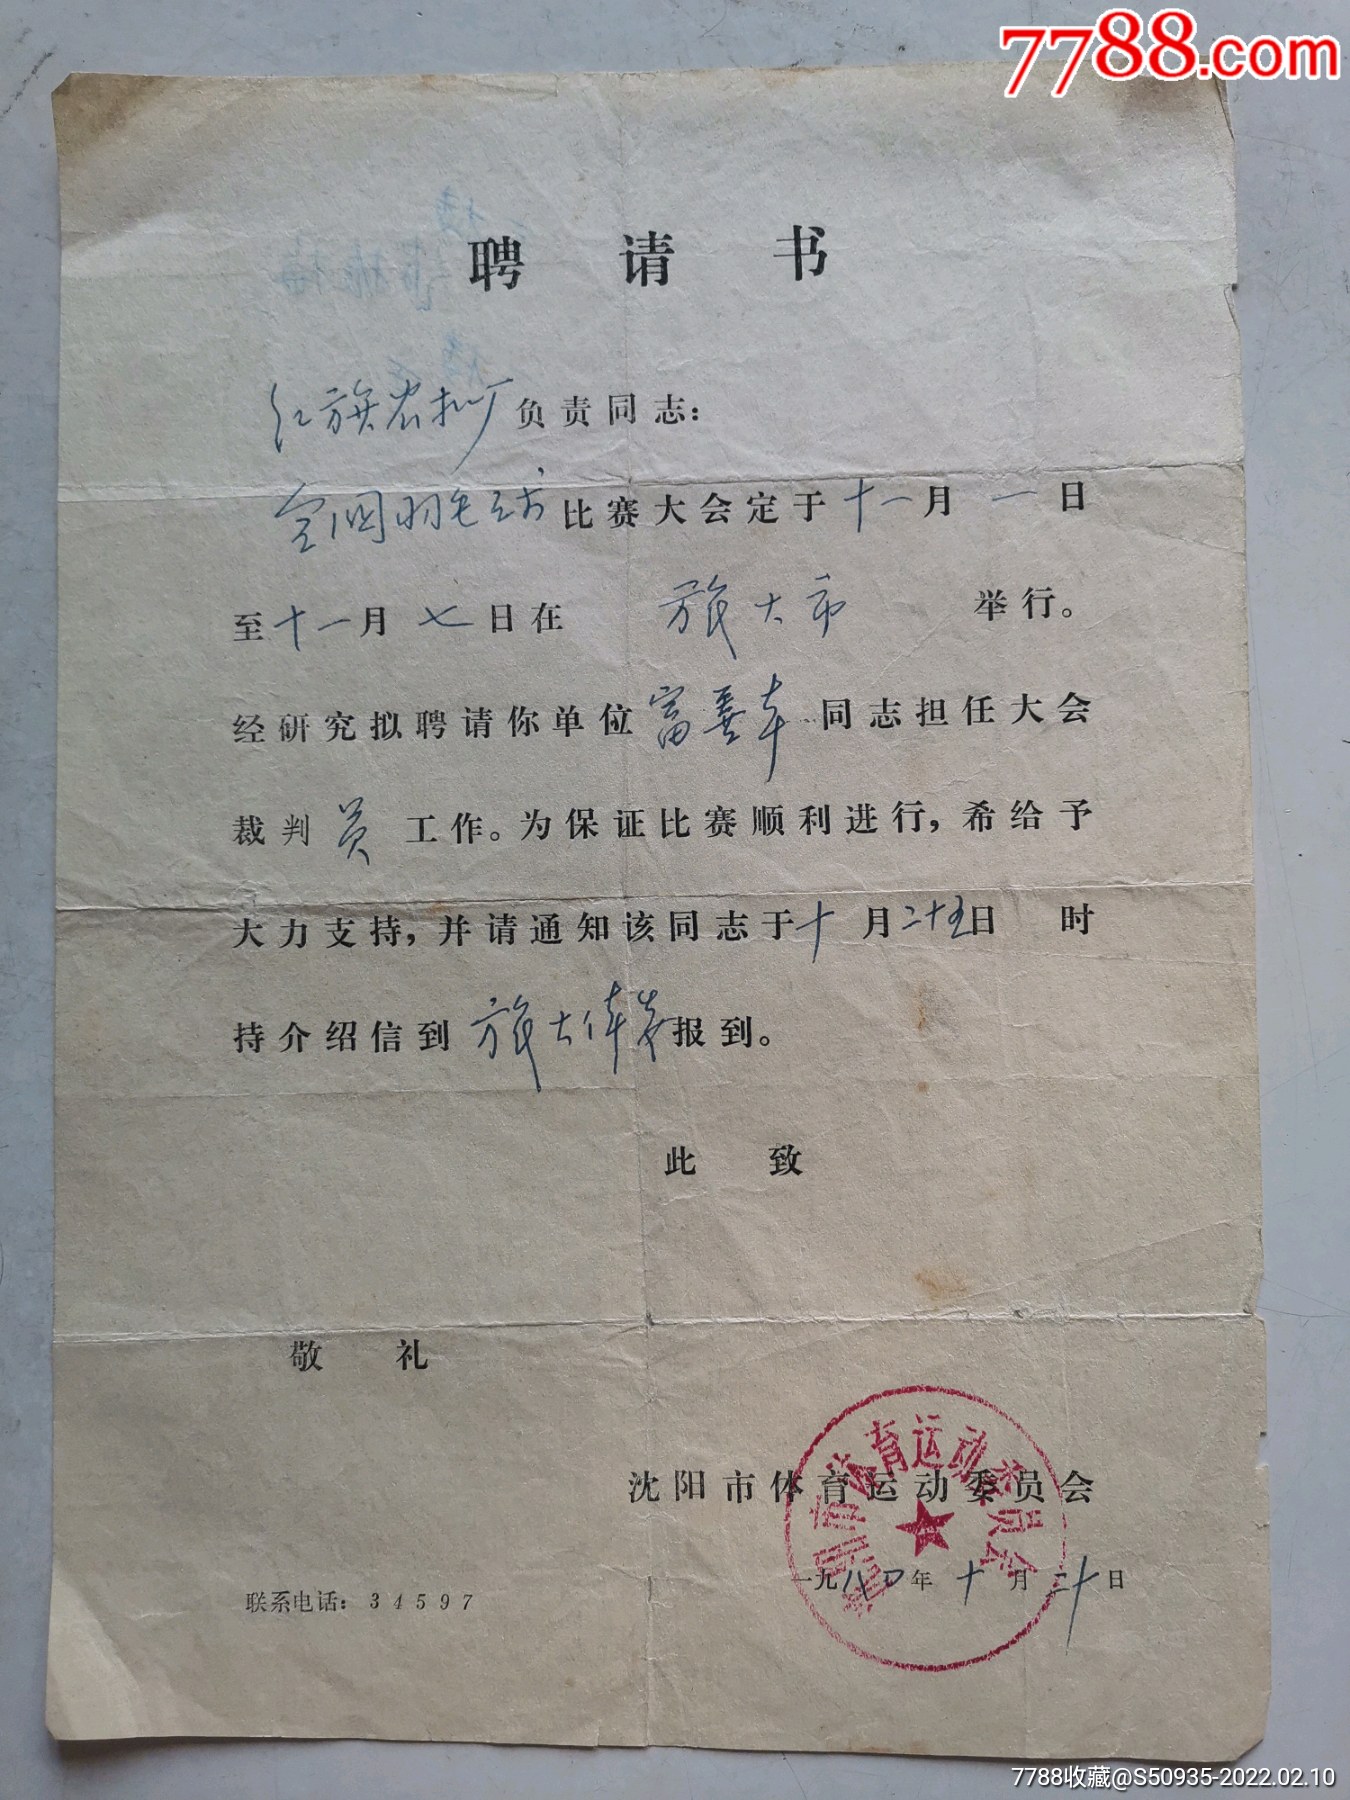 7788.com
聘请书
红旗农机厂负责同志：
全国羽毛球比赛大会定于十一月一日
至十一月七日在旅大市举行。
经研究拟聘请你单位富善车同志担任大会
裁判员工作。为保证比赛顺利进行，希给予
大力支持，并请通知该同志于十月二十五日 时
持介绍信到旅大体委报到。
此致
敬礼
沈阳市体育运动委员会
沈阳市体育运动委员会
一九八四年十月二十日
联系电话：34597
7788收藏@S50935-2022.02.10